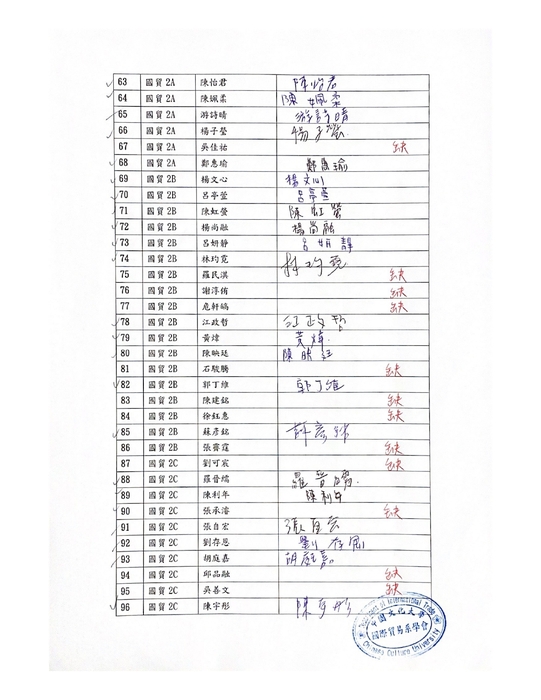 63 國貿 2A 陳怡君 陳怡君
64 國貿 2A 陳姵柔 陳姵柔
65 國貿 2A 游詩晴 游詩晴
66 國貿 2A 楊子瑩 楊子瑩
67 國貿 2A 吳佳祐 缺
68 國貿 2A 鄭惠瑜 鄭惠瑜
69 國貿 2B 楊文心 楊文心
70 國貿 2B 呂亭萱 呂亭萱
71 國貿 2B 陳虹螢 陳虹螢
72 國貿 2B 楊尚融 楊尚融
73 國貿 2B 呂妍靜 呂妍靜
74 國貿 2B 林玓霓 林玓霓
75 國貿 2B 羅民淇 缺
76 國貿 2B 謝淳侑 缺
77 國貿 2B 危軒 缺
78 國貿 2B 江政哲 江政哲
79 國貿 2B 黃煒 黃煒
80 國貿 2B 陳映廷 陳映廷
81 國貿 2B 石駿騰 缺
82 國貿 2B 郭丁維 郭丁維
83 國貿 2B 陳建銘 缺
84 國貿 2B 徐鈺惠 缺
85 國貿 2B 蘇彥銘
86 國貿 2B 張睿霆 缺
87 國貿 2C 劉可宸 缺
88 國貿 2C 羅晉 羅晉
89 國貿 2C 陳利年 陳利年
90 國貿 2C 張承濬 缺
91 國貿 2C 張自宏 張自宏
92 國貿 2C 劉存恩 劉存恩
93 國貿 2C 胡庭嘉 胡庭嘉
94 國貿 2C 邱品融 缺
95 國貿 2C 吳善文 缺
96 國貿 2C 陳宇彤 陳宇彤
Department of International Trade
中國文化大學
國際貿易系學會
Chinese Culture University